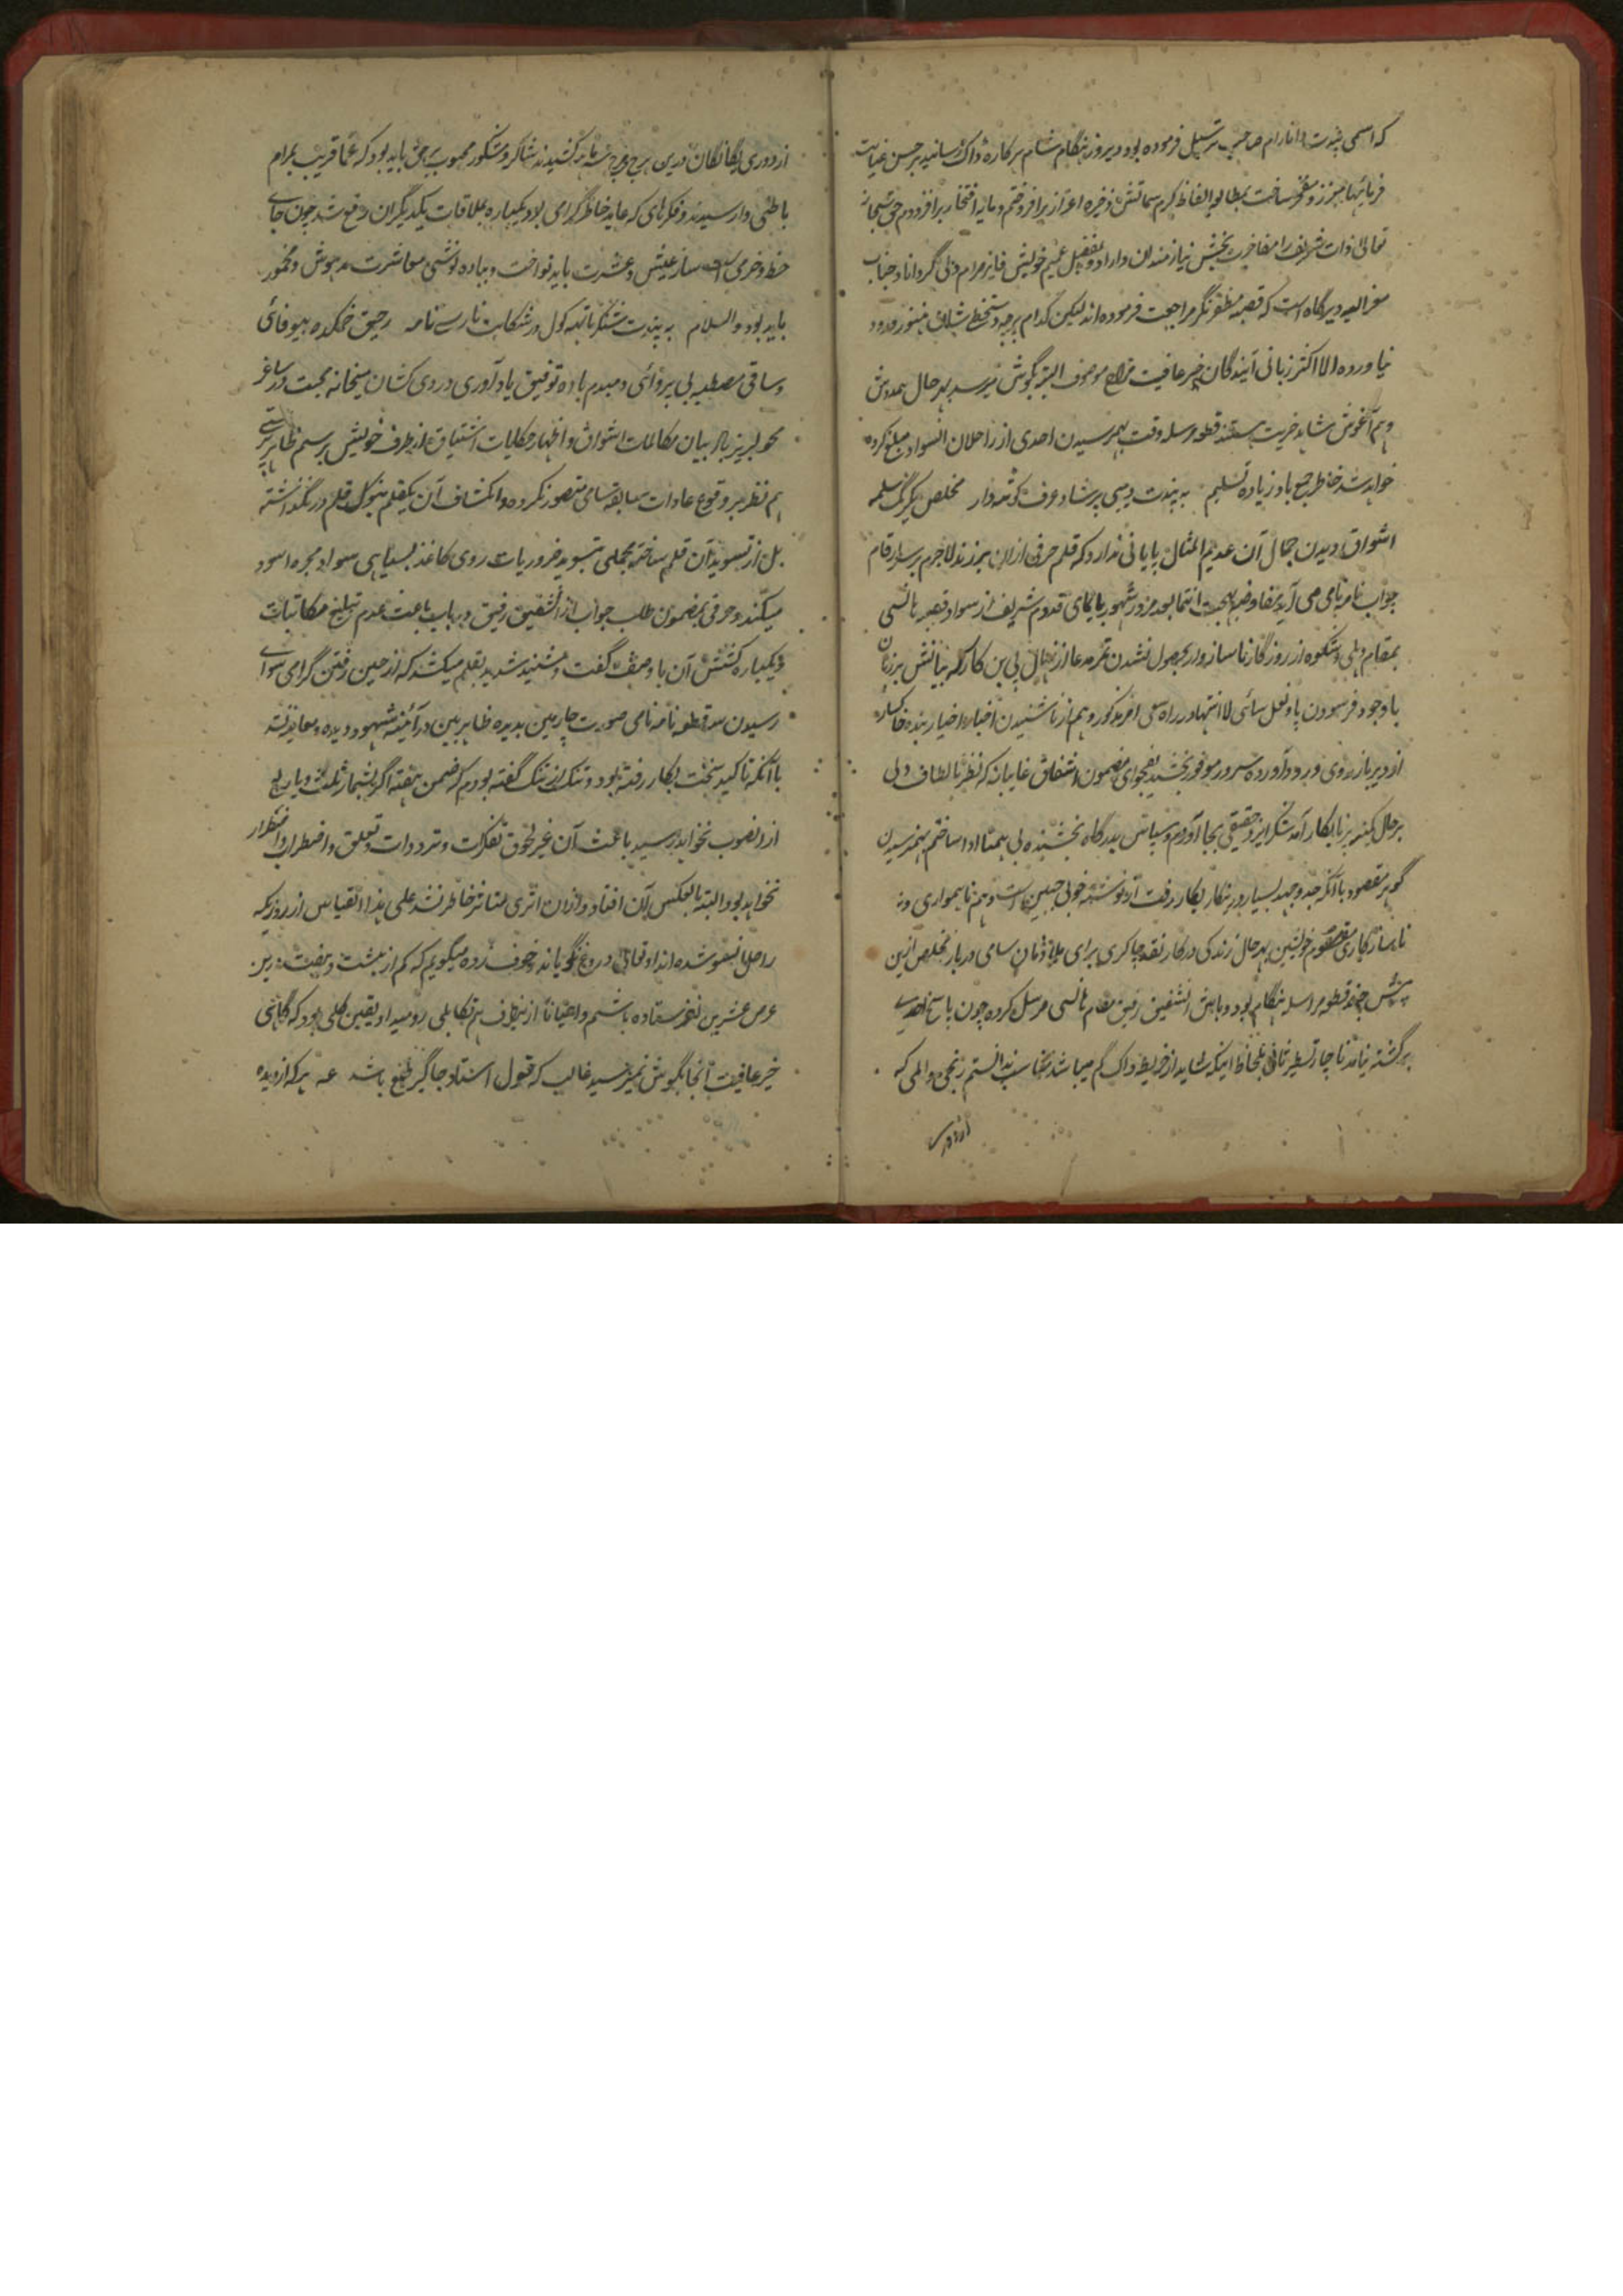 که اسمی پندت داتارام صاحب ترسیل فرموده بود دیروز هنگام شام هرکاره ڈاک رسانید بر حسن عنایت
فرمائیها مبرز و مفخر ساخت بمطالعه الفاظ کرم سماتش ذخیره اعزاز برافروختم و مایه افتخار برافزودم حق سبحانه
تعالی ذات شریف را مفاخرت بخش نیازمندان دارد و بفضل عمیم خویش فایز مرام دلی گرداناد جناب
معز الیه دیرگاه است که قصبه مظفرنگر مراجعت فرموده اند لیکن کدام پرچه دستخط شان هنوز ورود
نیاورده الا اکثر زبانی آیندگان خبر عافیت مزاج موصوف البته بگوش میرسد بهرحال همدوش
و هم آغوش شاهد خیریت هستند قطعه مرسله وقت بهم رسیدن احدی از راحلان آنسواد مبلغ کرده
خواهد شد خاطر جمع باد زیاده تسلیم به پندت دیبی پرشاد عرف مخلص یکرنگ سلمه
اشواق دیدن جمال آن عدیم المثال پایانی ندارد که قلم حرفی ازان برزند لاجرم بر سر ارقام
جواب نامه نامی می آید مفاوضه بهجت انتما بعد مرور شهور بایمای قدوم شریف از سواد قصبه هانسی
بمقام دهلی و شکوه از روزگار ناسازوار بحصول نشدن ثمر مدعا از نهال بی بن کار که بیانش بر زبان
باوجود فرسودن پا و نعل سائی لا انتها در راه سعی امر مذکور و هم از ناشنیدن اخبار اخیار بنده خاکسار
از دیر باز روی ورود آورده سرور موفور بخشید بفحوای مضمون اشفاق غایبانه که نظر بالطاف دلی
بر حال کمینه برنا بکار آمد شکر ایزد حقیقی بجا آوردم و سپاس بدرگاه بخشنده بی همتا ادا ساختم بهم نرسیدن
گوهر مقصود باآنکه جد و جهد بسیار در بنکار بکار رفت از نوشته خوبی جبین است و هم ناهمواری و نه
ناسازگاری مقسوم خویشین بهر حال زندگی درکار نقد چاکری برای ملازمان سامی دربار مخلص ازین
پیش چند قطعه مراسله هنگام بود و باش الشفیق رفیق بمقام هانسی مرسل کرده چون پاسخ احدی
برگشته نیامد ناچار تسطیر ثانی بلحاظ اینکه شاید از خریطه ڈاک گم میباشد مناسب ندانستم رنجی و المی که
از دوری
از دوری یگانگان درین هرج مرج شما کشیدند شاکر و شکور محبوب بر حق باید بود که عما قریب بمرام
باطنی وارسیدند و فکرهای که عاید خاطر گرامی بود یکباره بملاقات یکدیگران رفع شد چون جای
حظ و خرمی است ساز عیش و عشرت باید نواخت و بباده نوشی معاشرت مدهوش و مخمور
باید بود والسلام به پندت شنکرناتهه کول در شکایت نارسی نامه رحیق خمکده بیوفائی
و ساقی مصطبه بی پروائی دمبدم باده توفیق یادآوری در دوی کشان میخانه محبت در ساغر
محو لبریز باد بیان مکالمات اشواق و اظهار حکایات اشتیاق از طرف خویش برسم ظاهر پرستی
هم نظر بر وقوع عادات سابقه سامی متصور نکرده و انکشاف آن یکقلم بنوک قلم در نگذاشته
بل از تسوید آن قلم ساخته مجملی بتسوید ضروریات روی کاغذ بسیاهی سواد بهره اسود
میکند و حرفی بمضمون طلب جواب از الشفیق رفیق در باب باعث عدم تبلیغ مکاتبات
و یکباره کشش آن باوصف گفت و شنید شدید بقلم میکشد که از حین رفتن گرامی سوای
رسیدن سه قطعه نامه نامی صورت چارمین بدیده ظاهر بین در آئینه شهود دیده و معاینه نشد
باآنکه تاکید سخت بکار رفته بود و تنک تنک گفته بودم که ضمن هفته اگر بشمار ثلث و یا ربع
ازانصوب نخواهد رسید باعث آن غیر لحوق تفکرات و ترددات و تعلق و اضطراب و اضطرار
نخواهد بود البته بالعکس آن افتاد و ازان اثری متاثر خاطر نشد علی هذا القیاس از روزیکه
راحل آنسو شده اند اوقاتی دروغ نگویاند و خوف زده میگویم که کم از بیست و هفت درین
عرض عشرین نفرستاده باشم و احیانا از انطرف هم تکاهلی رو میداد یقین کلی بود که گاهی
خیر عافیت آنجا بگوش نمیرسید غالب که قبول استاد جاگیر طبع باشد عه هر که از دیده